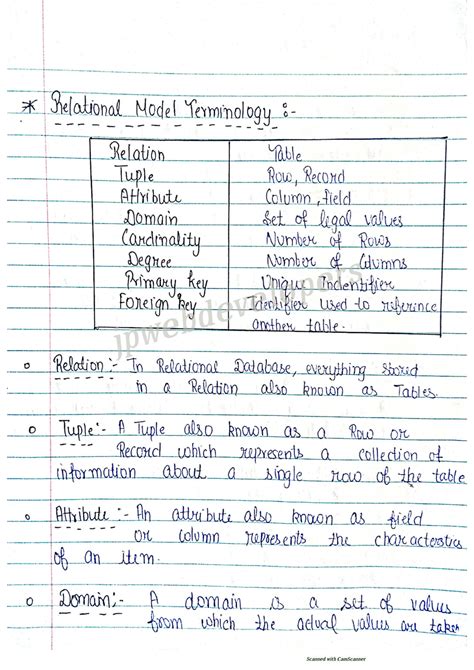 * Relational Model Terminology :-
Relation Table
Tuple Row, Record
Attribute Column, field
Domain Set of legal values
Cardinality Number of Rows
Degree Number of Columns
Primary key Unique Indentifier
Foreign key Identifier used to reference
another table.
jpwebdevelopers
o Relation :- In Relational Database, everything stored
in a Relation also known as Tables.
o Tuple :- A Tuple also known as a Row or
Record which represents a collection of
information about a single row of the table
o Attribute :- An attribute also known as field
or column represents the characterstics
of an item.
o Domain :- A domain is a set of values
from which the actual values are taken
Scanned with CamScanner